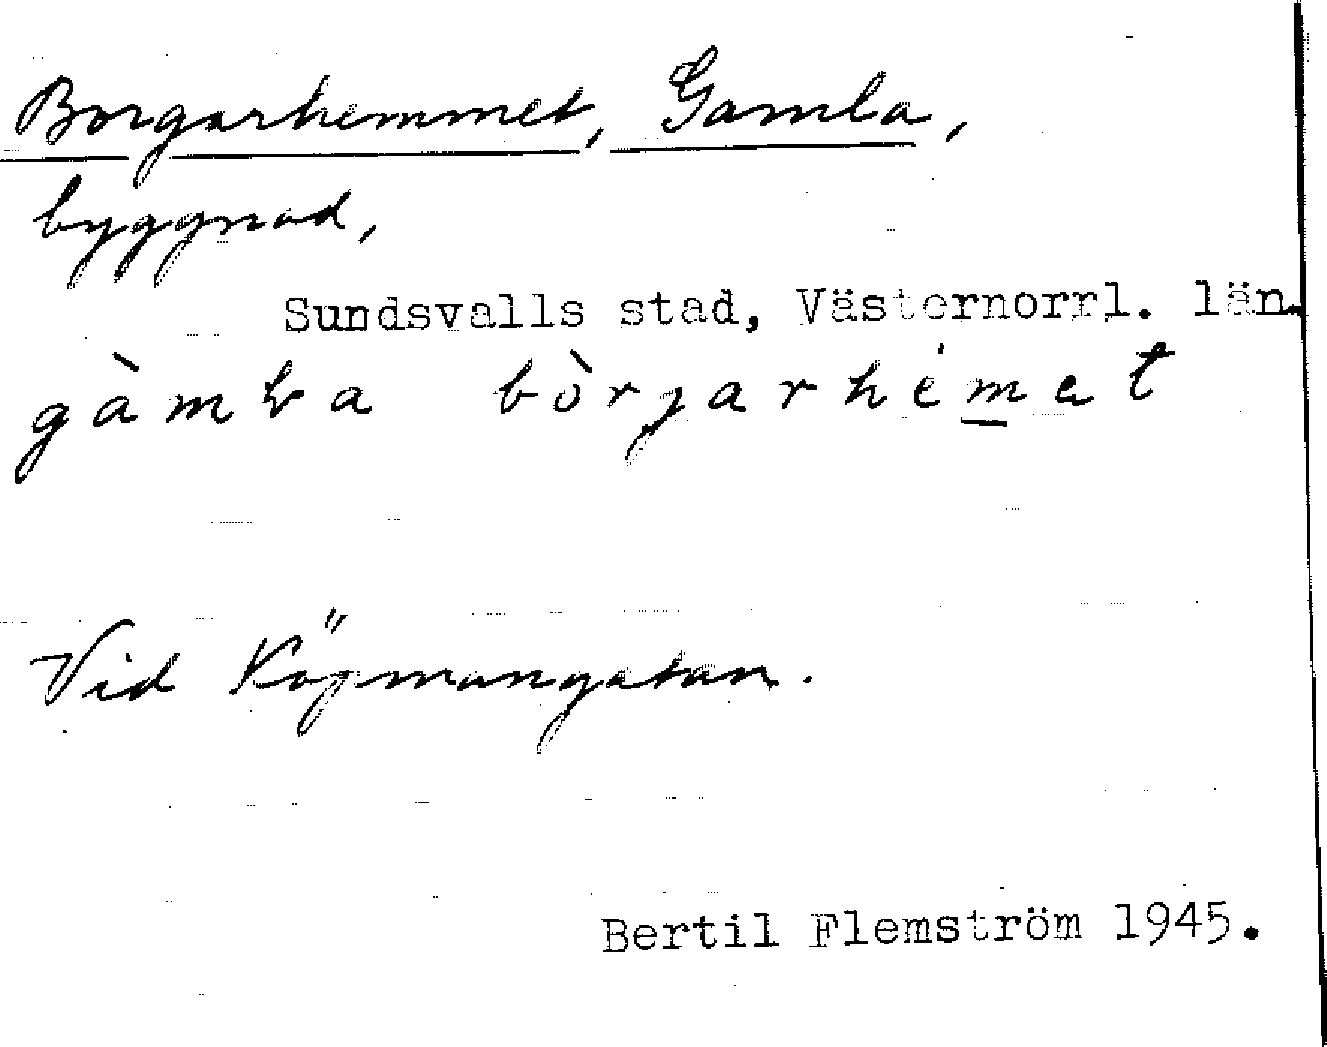 Borgarhemmet, Gamla,
byggnad,
Sundsvalls stad, Västernorrl. län.
gàmla bòrjarhémet
Vid Köpmangatan.
Bertil Flemström 1945.